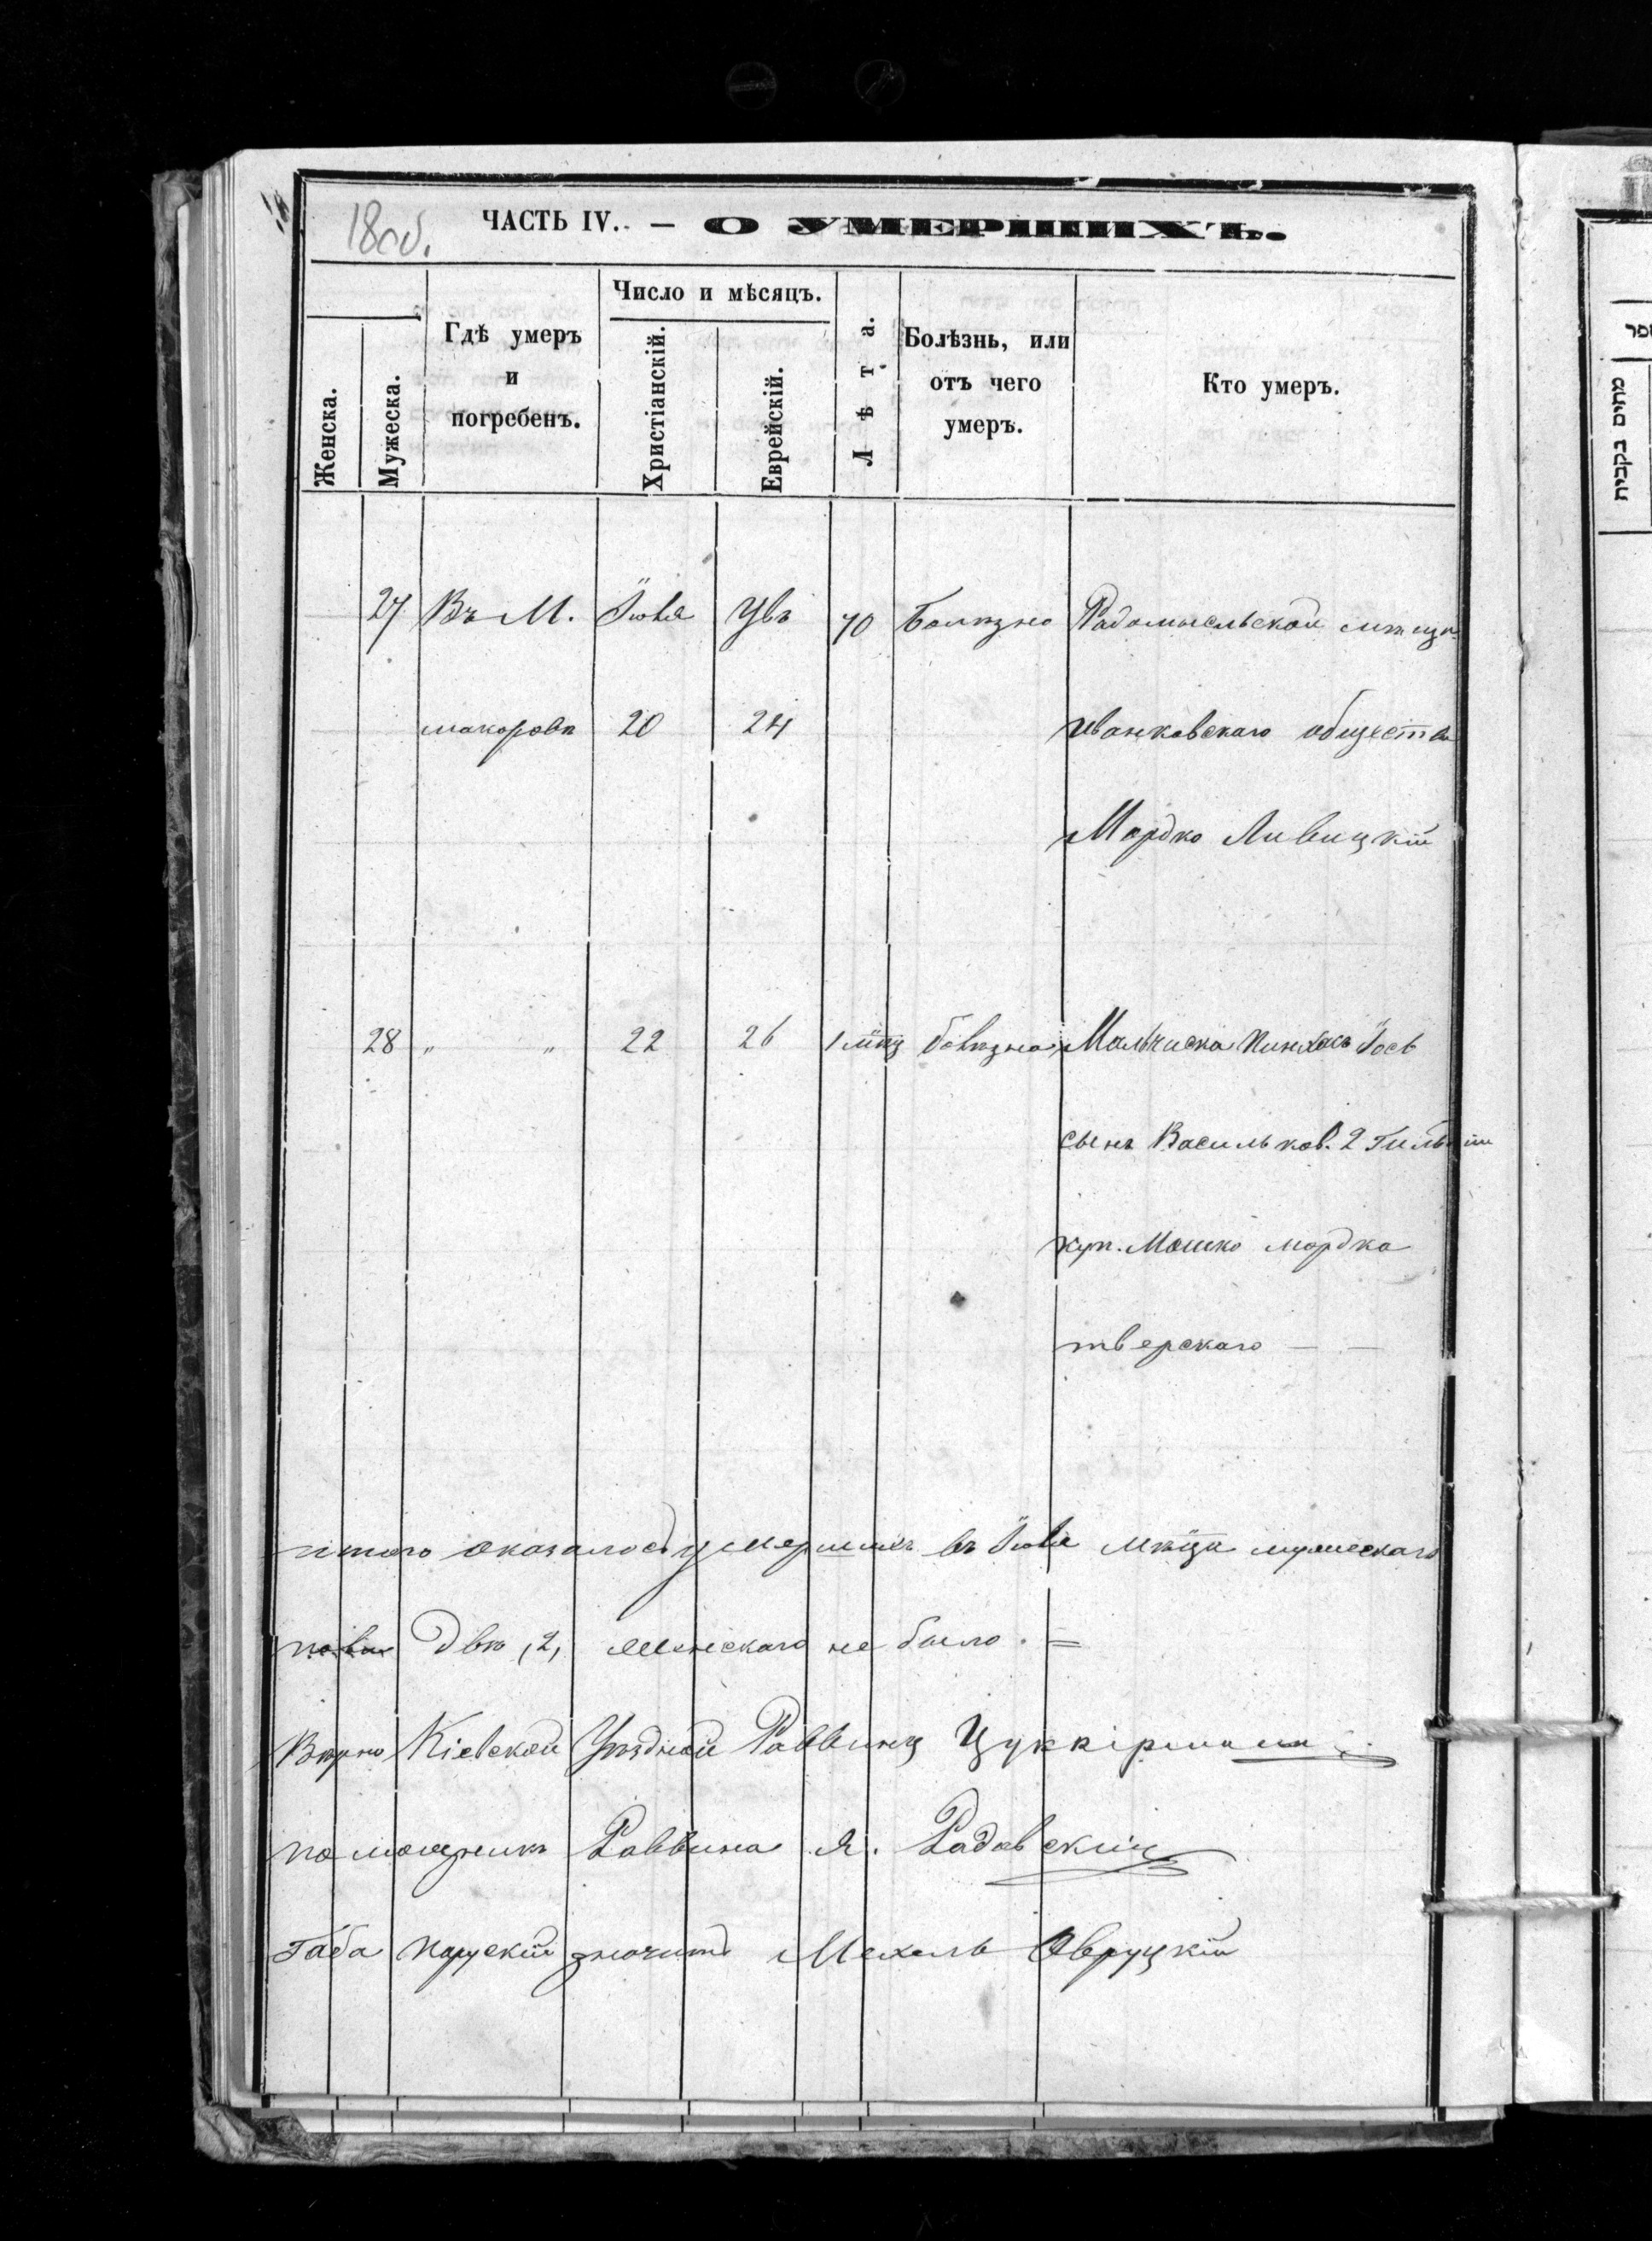 18об.
ЧАСТЬ IV. — О УМЕРШИХЪ.
Женска.
Мужеска.
Гдѣ умеръ
и
погребенъ.
Число и мѣсяцъ.
Христіанскій.
Еврейскій.
Лѣта.
Болѣзнь, или
отъ чего
умеръ.
Кто умеръ.
27 Въ М. Іюля 70 Болѣзно Радомысльской мѣщ.
макоровѣ 20 24 Иванковскаго общества
Мордко Ливицкій
28 " " 22 26 1 мѣц болѣзно Мальчиска Пинхасъ Іось
сынъ Васильков. 2 Гильдіи
куп. Мошко мордко
тверскаго — —
итого оказалось умершихъ въ Іюле Мѣцѣ мужескаго
пола Два ,2, Женскаго не было. =
Вѣрно Кіевской Уѣздной Раввинъ Цуккірмана
помощникъ Раввина Я. Радовскій
Габа значитъ Мехель Овруцкій
מתים בקבית